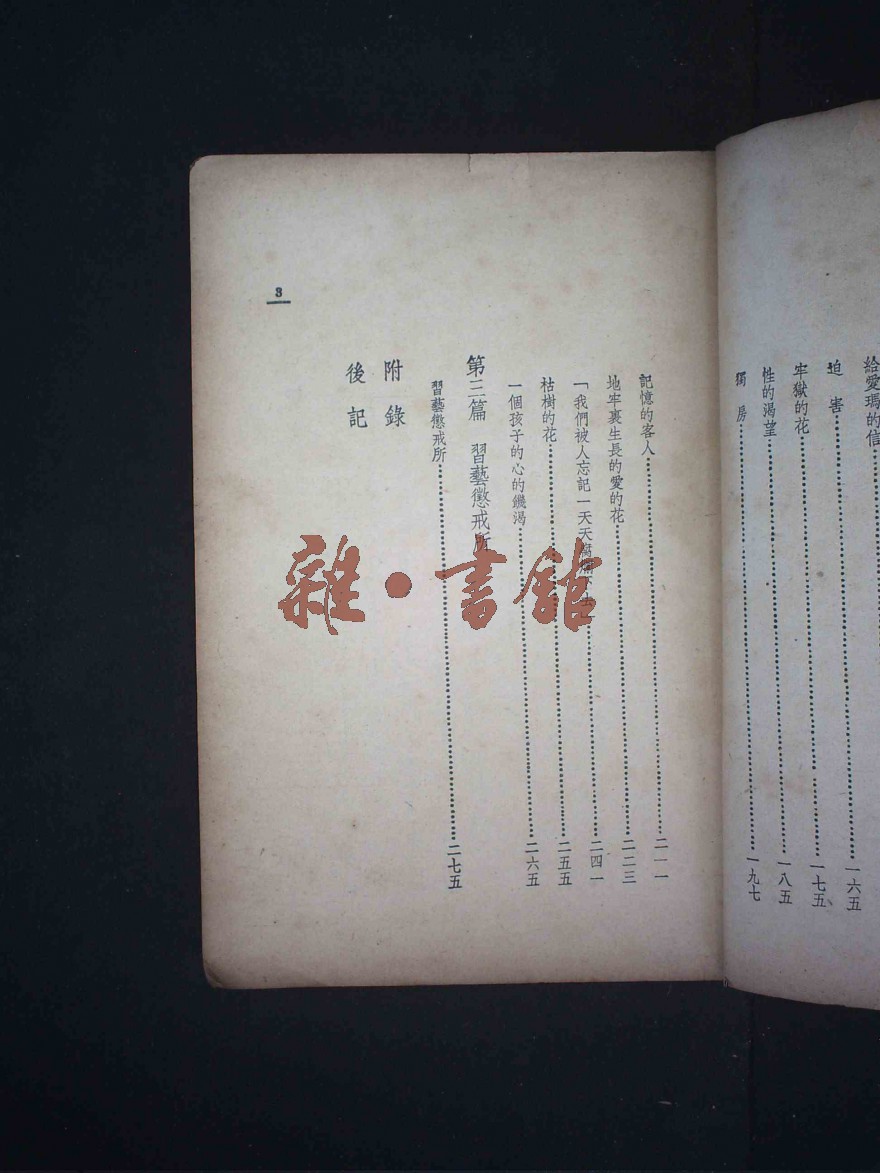 給愛瑪的信……一六五
迫害……一七五
牢獄的花……一八五
性的渴望……一九七
獨房
3
記憶的客人……二一一
地牢裏生長的愛的花……二二三
「我們被人忘記一天天腐……二四一
枯樹的花……二五五
一個孩子的心的饑渴……二六五
第三篇 習藝懲戒所
習藝懲戒所……二七五
附錄
後記
雜·書館